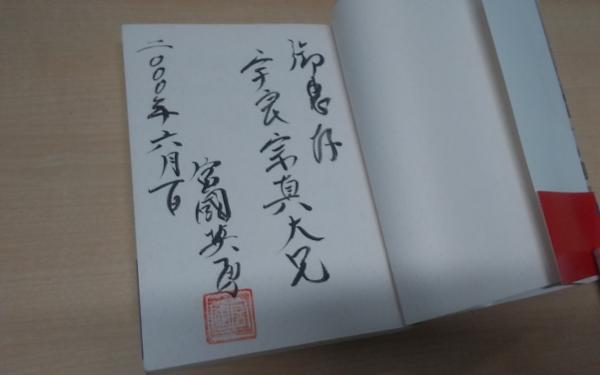 御恵存
宇良宗真大兄
宮國英勇
二〇〇〇年六月一日